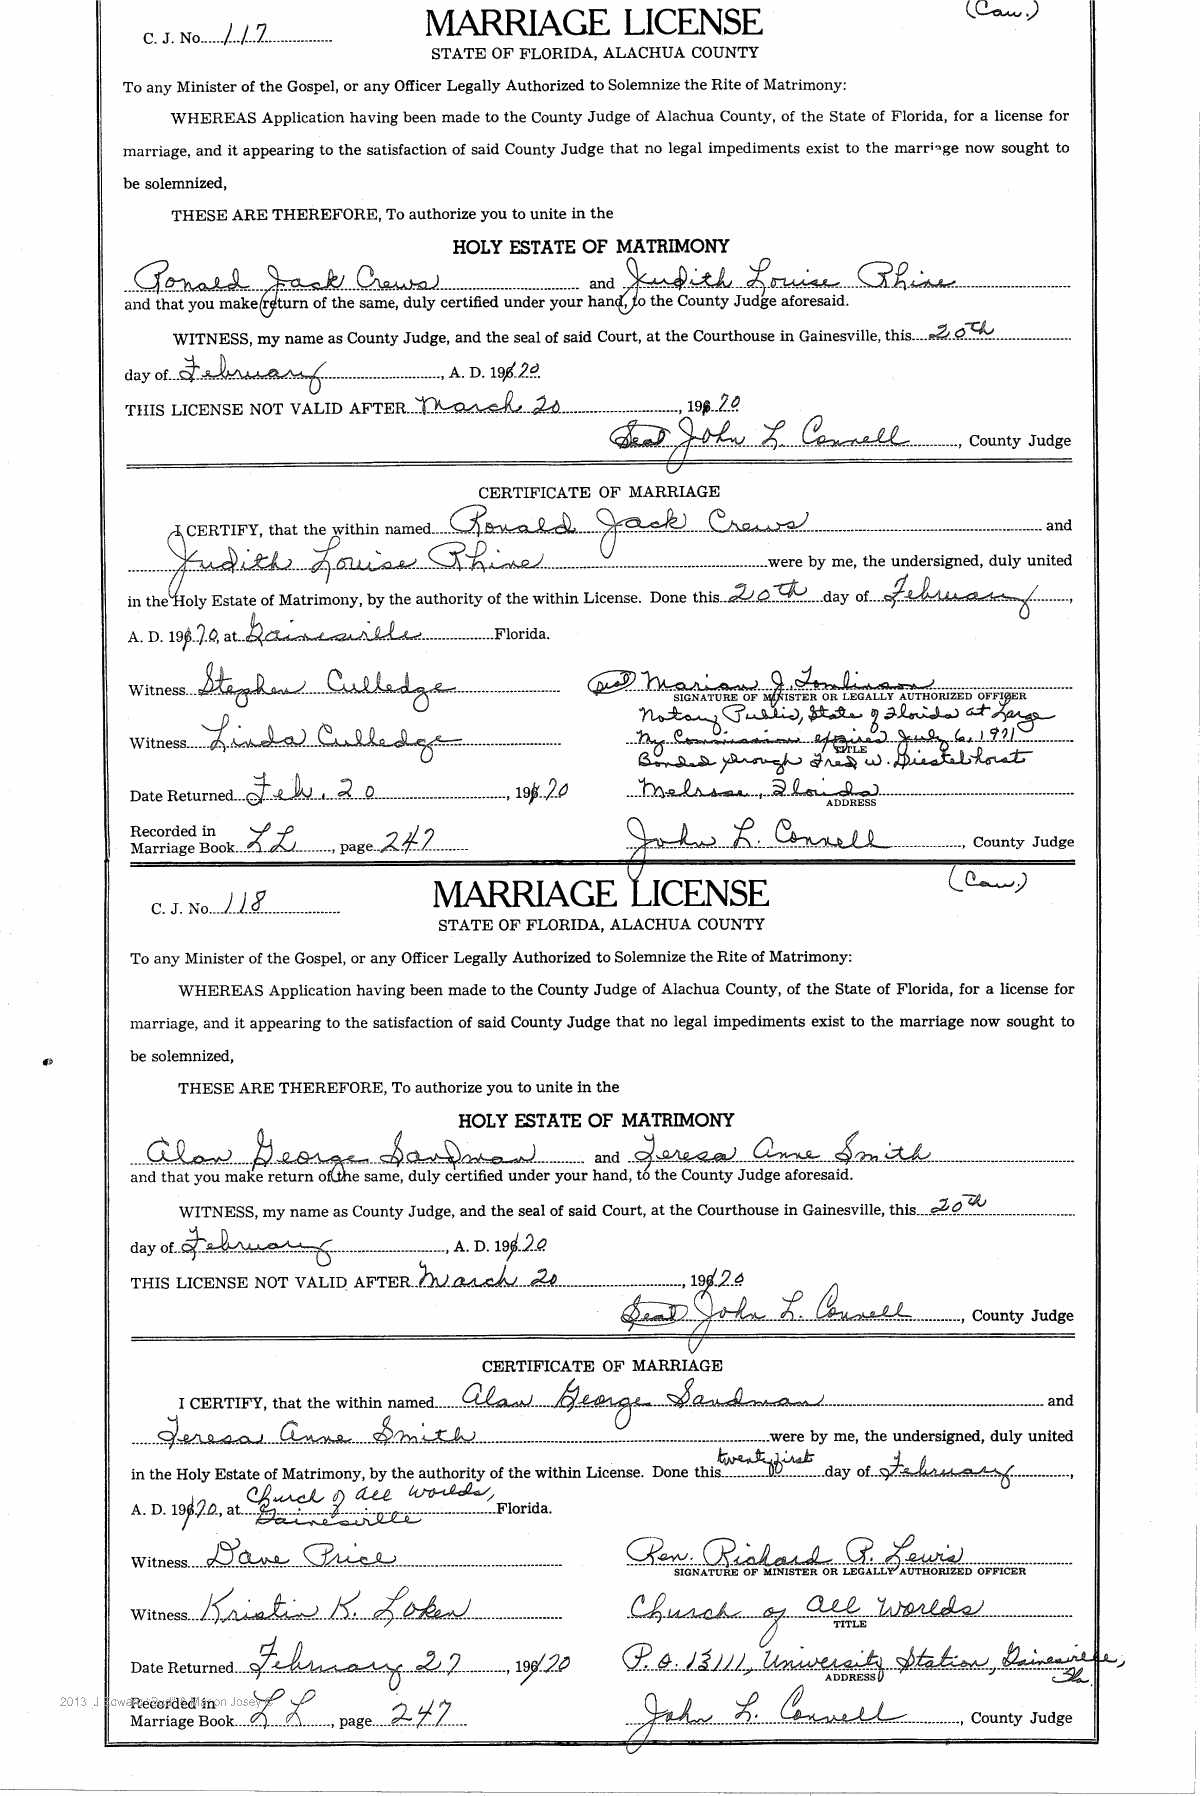 (Caw.)
C. J. No. 117
MARRIAGE LICENSE
STATE OF FLORIDA, ALACHUA COUNTY
To any Minister of the Gospel, or any Officer Legally Authorized to Solemnize the Rite of Matrimony:
WHEREAS Application having been made to the County Judge of Alachua County, of the State of Florida, for a license for
marriage, and it appearing to the satisfaction of said County Judge that no legal impediments exist to the marriage now sought to
be solemnized,
THESE ARE THEREFORE, To authorize you to unite in the
HOLY ESTATE OF MATRIMONY
Ronald Jack Crews and Judith Louise Rhine
and that you make return of the same, duly certified under your hand, to the County Judge aforesaid.
WITNESS, my name as County Judge, and the seal of said Court, at the Courthouse in Gainesville, this 20th
day of February, A. D. 1970
THIS LICENSE NOT VALID AFTER March 20, 1970
Seal John L. Connell, County Judge
CERTIFICATE OF MARRIAGE
I CERTIFY, that the within named Ronald Jack Crews and
Judith Louise Rhine were by me, the undersigned, duly united
in the Holy Estate of Matrimony, by the authority of the within License. Done this 20th day of February,
A. D. 1970, at Gainesville Florida.
Witness Stephen Culledge Seal Marian J. Tomlinson
SIGNATURE OF MINISTER OR LEGALLY AUTHORIZED OFFICER
Notary Public, State of Florida at Large
Witness Linda Culledge My Commission expires July 6, 1971
TITLE
Bonded through Fred W. Diestelhorst
Date Returned Feb. 20, 1970 Melrose, Florida
ADDRESS
Recorded in
Marriage Book LL, page 247 John L. Connell, County Judge
(Caw.)
C. J. No. 118
MARRIAGE LICENSE
STATE OF FLORIDA, ALACHUA COUNTY
To any Minister of the Gospel, or any Officer Legally Authorized to Solemnize the Rite of Matrimony:
WHEREAS Application having been made to the County Judge of Alachua County, of the State of Florida, for a license for
marriage, and it appearing to the satisfaction of said County Judge that no legal impediments exist to the marriage now sought to
be solemnized,
THESE ARE THEREFORE, To authorize you to unite in the
HOLY ESTATE OF MATRIMONY
Alan George Sandman and Teresa Anne Smith
and that you make return of the same, duly certified under your hand, to the County Judge aforesaid.
WITNESS, my name as County Judge, and the seal of said Court, at the Courthouse in Gainesville, this 20th
day of February, A. D. 1970
THIS LICENSE NOT VALID AFTER March 20, 1970
Seal John L. Connell, County Judge
CERTIFICATE OF MARRIAGE
I CERTIFY, that the within named Alan George Sandman and
Teresa Anne Smith were by me, the undersigned, duly united
in the Holy Estate of Matrimony, by the authority of the within License. Done this twenty first day of February,
Church of All Worlds,
A. D. 1970, at Gainesville Florida.
Witness Dave Price Rev. Richard R. Lewis
SIGNATURE OF MINISTER OR LEGALLY AUTHORIZED OFFICER
Witness Kristin K. Loken Church of All Worlds
TITLE
Date Returned February 27, 1970 P.O. 13111, University Station, Gainesville, Fla.
ADDRESS
Recorded in
Marriage Book LL, page 247 John L. Connell, County Judge